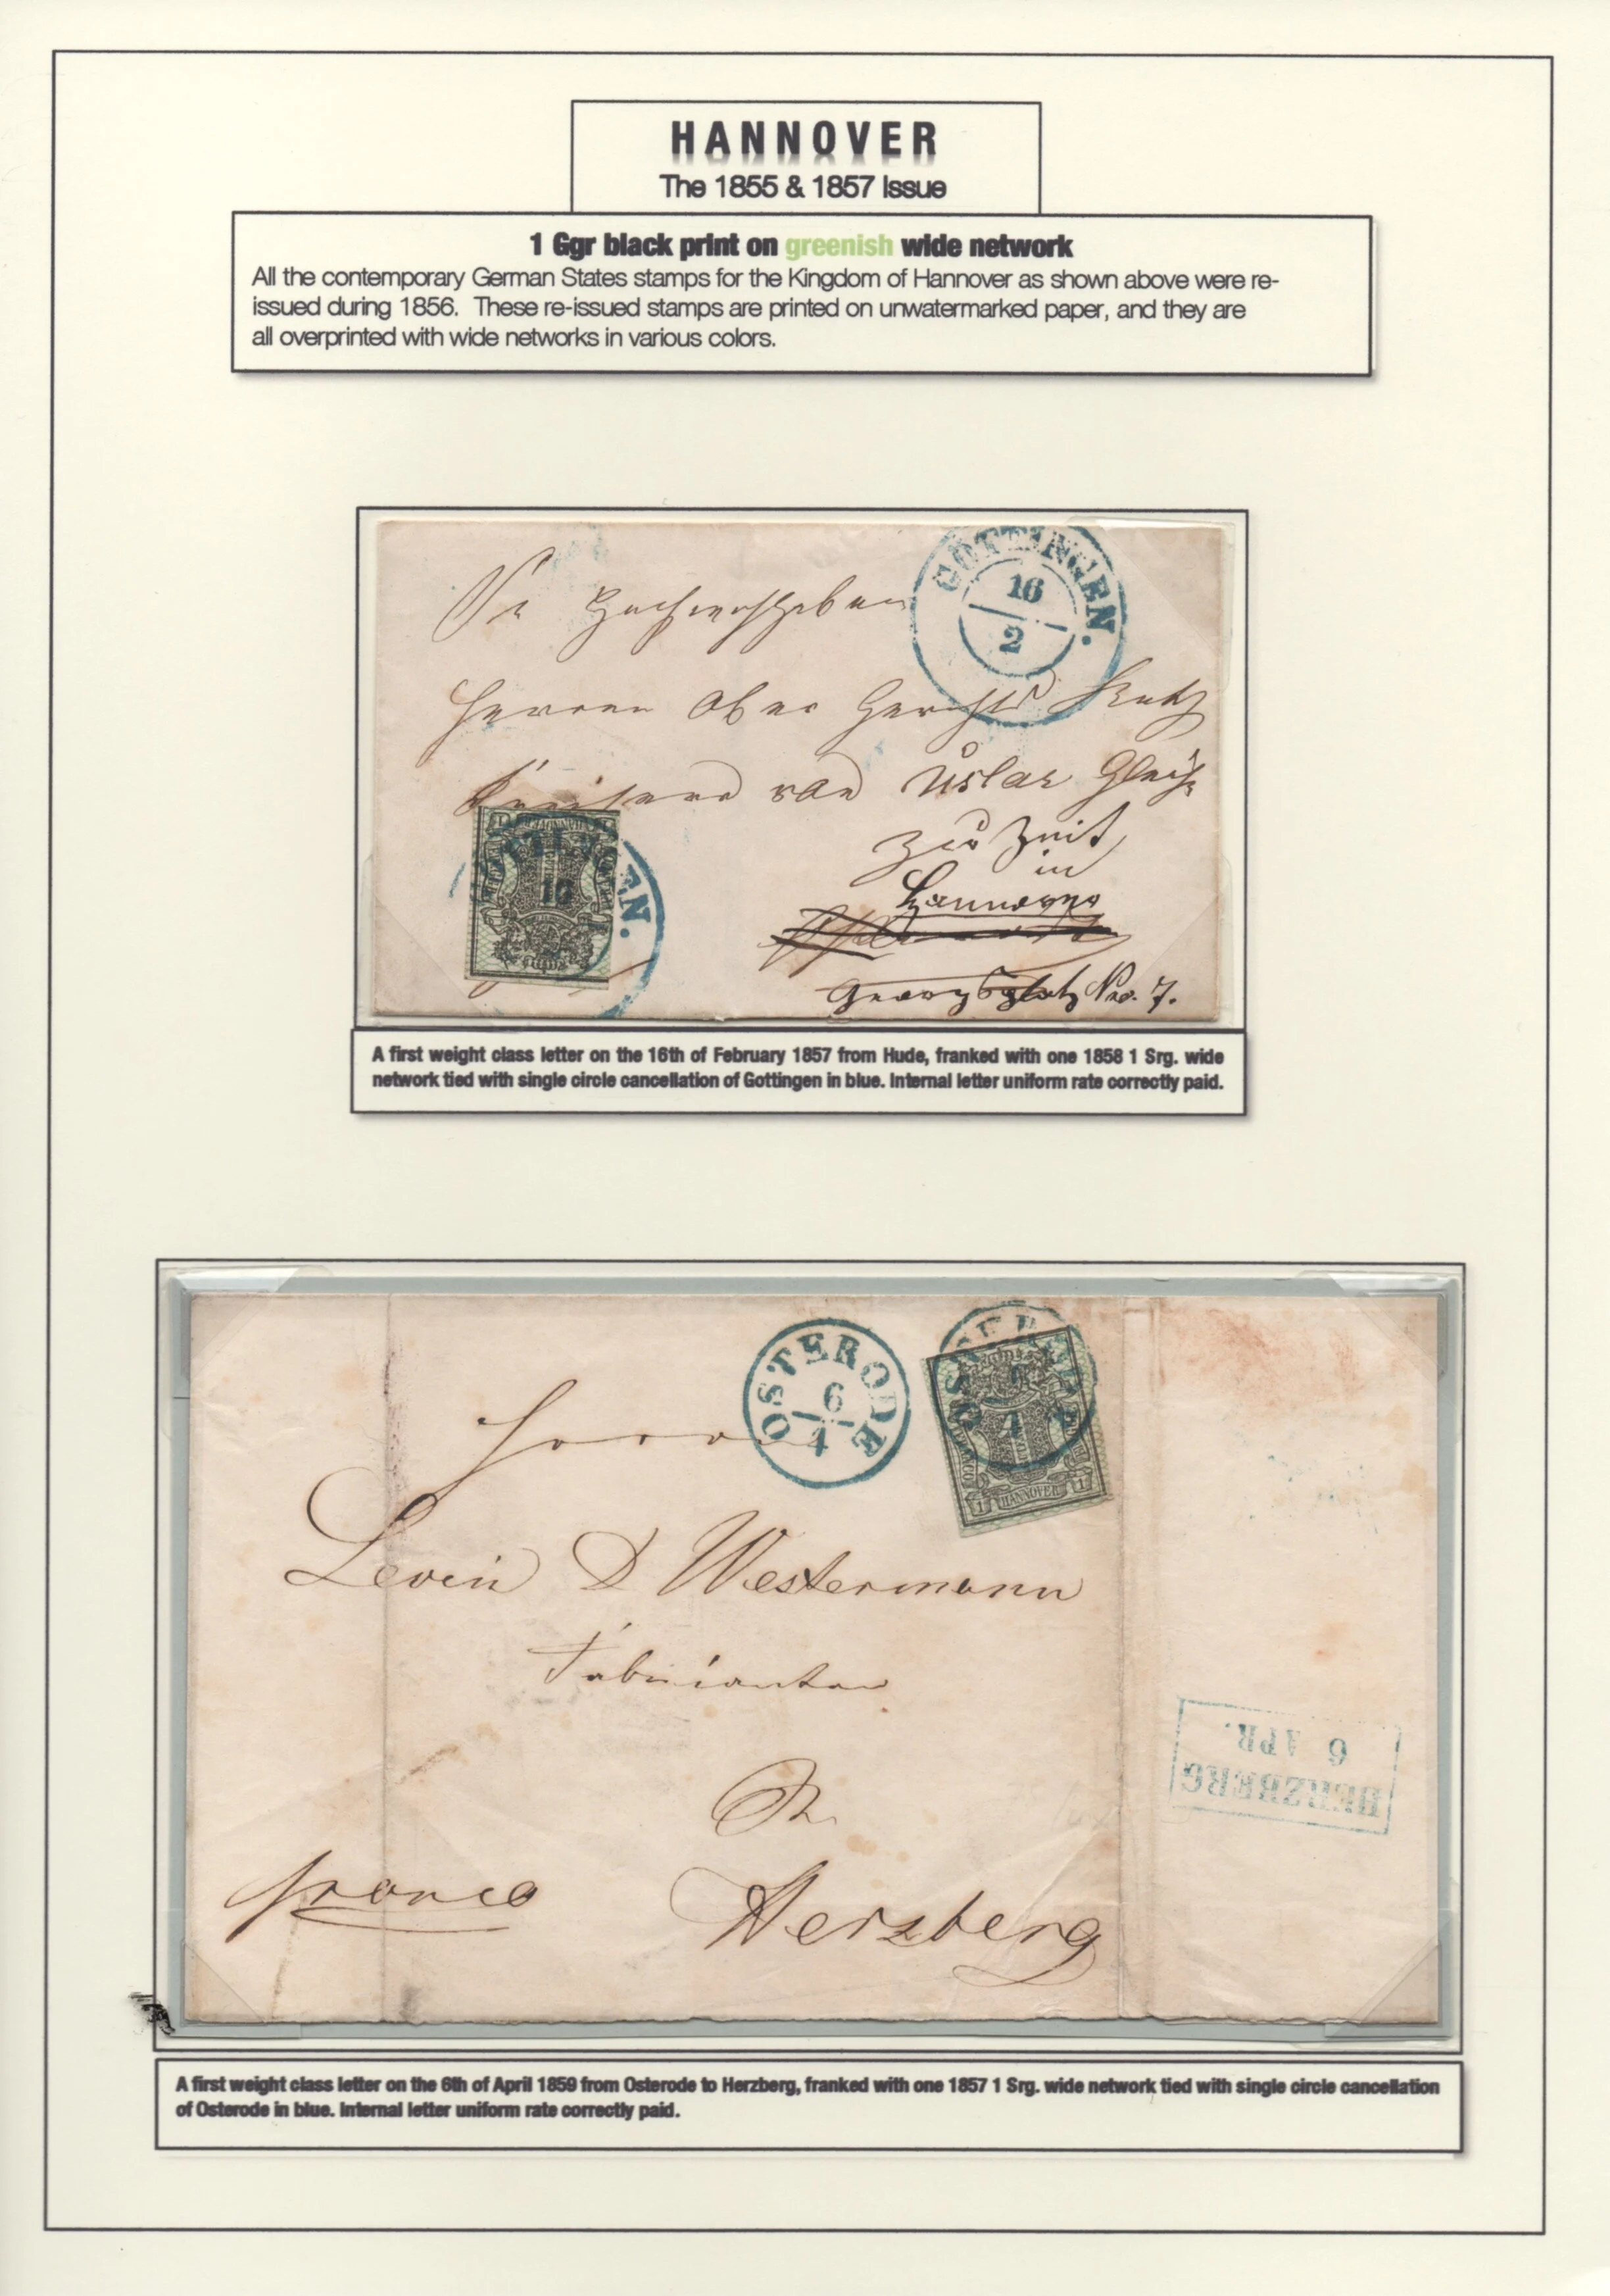 HANNOVER
The 1855 & 1857 Issue
1 Ggr black print on greenish wide network
All the contemporary German States stamps for the Kingdom of Hannover as shown above were re-
issued during 1856. These re-issued stamps are printed on unwatermarked paper, and they are
all overprinted with wide networks in various colors.
GÖTTINGEN.
16
2
Herrn Ober Gerichts Rath
von Uslar Gleich
zur Zeit
in
Hannover
Georgsplatz Nro. 7.
A first weight class letter on the 16th of February 1857 from Hude, franked with one 1858 1 Srg. wide
network tied with single circle cancellation of Gottingen in blue. Internal letter uniform rate correctly paid.
OSTERODE
6
4
HANNOVER
1 1
Herrn
Levin & Westermann
Fabrikanten
HERZBERG
6 APR.
franco
Herzberg
A first weight class letter on the 6th of April 1859 from Osterode to Herzberg, franked with one 1857 1 Srg. wide network tied with single circle cancellation
of Osterode in blue. Internal letter uniform rate correctly paid.